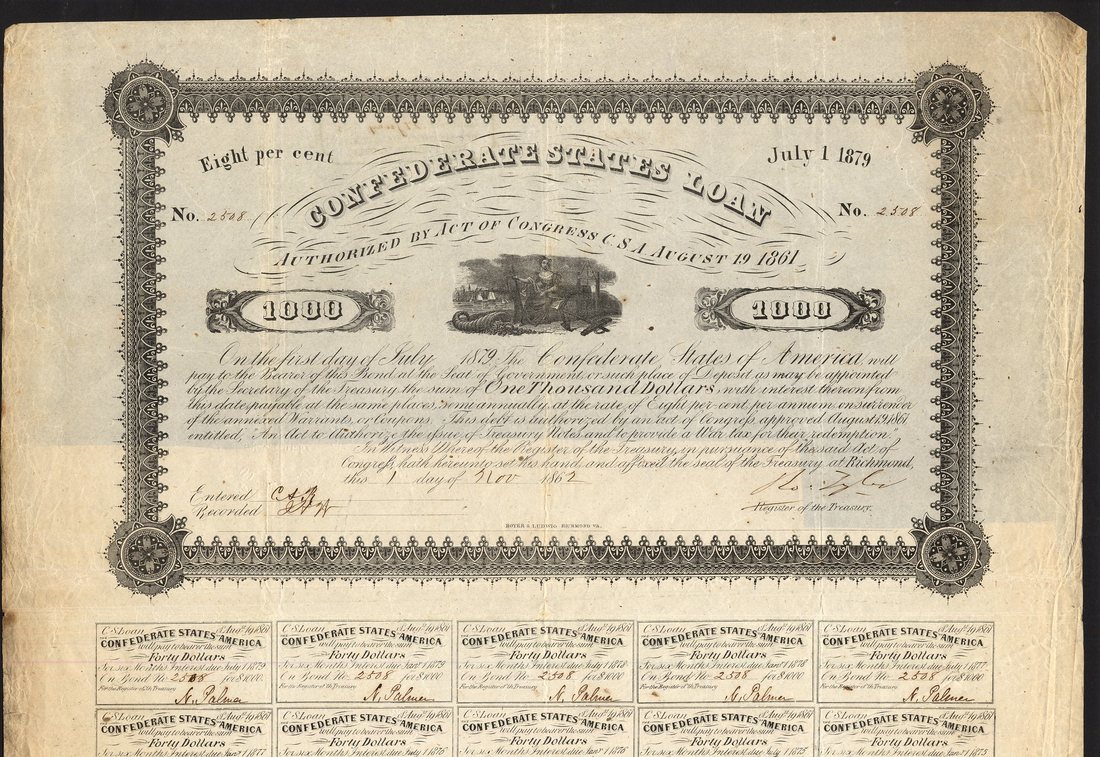 Eight per cent
CONFEDERATE STATES LOAN
July 1 1879
No. 2508
No. 2508
AUTHORIZED BY ACT OF CONGRESS C.S.A. AUGUST 19 1861
1000
1000
On the first day of July 1879 The Confederate States of America will
pay to the Bearer of this Bond, at the Seat of Government, or such place of Deposit as may be appointed
by the Secretary of the Treasury, the sum of One Thousand Dollars, with interest thereon from
this date, payable at the same places, semi annually, at the rate of Eight per cent, per annum, on surrender
of the annexed Warrants, or Coupons. This debt is authorized by an act of Congress, approved August 19, 1861,
entitled, "An Act to authorize the issue of Treasury Notes and to provide a War tax for their redemption."
In Witness Whereof the Register of the Treasury, in pursuance of the said Act of
Congress, hath hereunto set his hand, and affixed the seal of the Treasury, at Richmond,
this 1 day of Nov 1862
Entered
Recorded
Register of the Treasury.
HOYER & LUDWIG RICHMOND VA.
C S Loan Augt. 19 1861
CONFEDERATE STATES AMERICA
will pay to bearer the sum
Forty Dollars
For six Months Interest due July 1 1879
On Bond No 2508 for $1000.
For the Register of Th. Treasury
N. Palmer
C S Loan Augt. 19 1861
CONFEDERATE STATES AMERICA
will pay to bearer the sum
Forty Dollars
For six Months Interest due Jany. 1 1879
On Bond No 2508 for $1000
For the Register of Th. Treasury
N. Palmer
C S Loan Augt. 19 1861
CONFEDERATE STATES AMERICA
will pay to bearer the sum
Forty Dollars
For six Months Interest due July 1 1878
On Bond No 2508 for $1000
For the Register of Th. Treasury
N. Palmer
C S Loan Augt. 19 1861
CONFEDERATE STATES AMERICA
will pay to bearer the sum
Forty Dollars
For six Months Interest due Jany. 1 1878
On Bond No 2508 for $1000
For the Register of Th. Treasury
N. Palmer
C S Loan Augt. 19 1861
CONFEDERATE STATES AMERICA
will pay to bearer the sum
Forty Dollars
For six Months Interest due July 1 1877
On Bond No 2508 for $1000
For the Register of Th. Treasury
N. Palmer
C S Loan Augt. 19 1861
CONFEDERATE STATES AMERICA
will pay to bearer the sum
Forty Dollars
For six Months Interest due Jany. 1 1877
C S Loan Augt. 19 1861
CONFEDERATE STATES AMERICA
will pay to bearer the sum
Forty Dollars
For six Months Interest due
C S Loan Augt. 19 1861
CONFEDERATE STATES AMERICA
will pay to bearer the sum
Forty Dollars
For six Months Interest due
C S Loan Augt. 19 1861
CONFEDERATE STATES AMERICA
will pay to bearer the sum
Forty Dollars
For six Months Interest due July 1 1875
C S Loan Augt. 19 1861
CONFEDERATE STATES AMERICA
will pay to bearer the sum
Forty Dollars
For six Months Interest due Jany. 1 1875